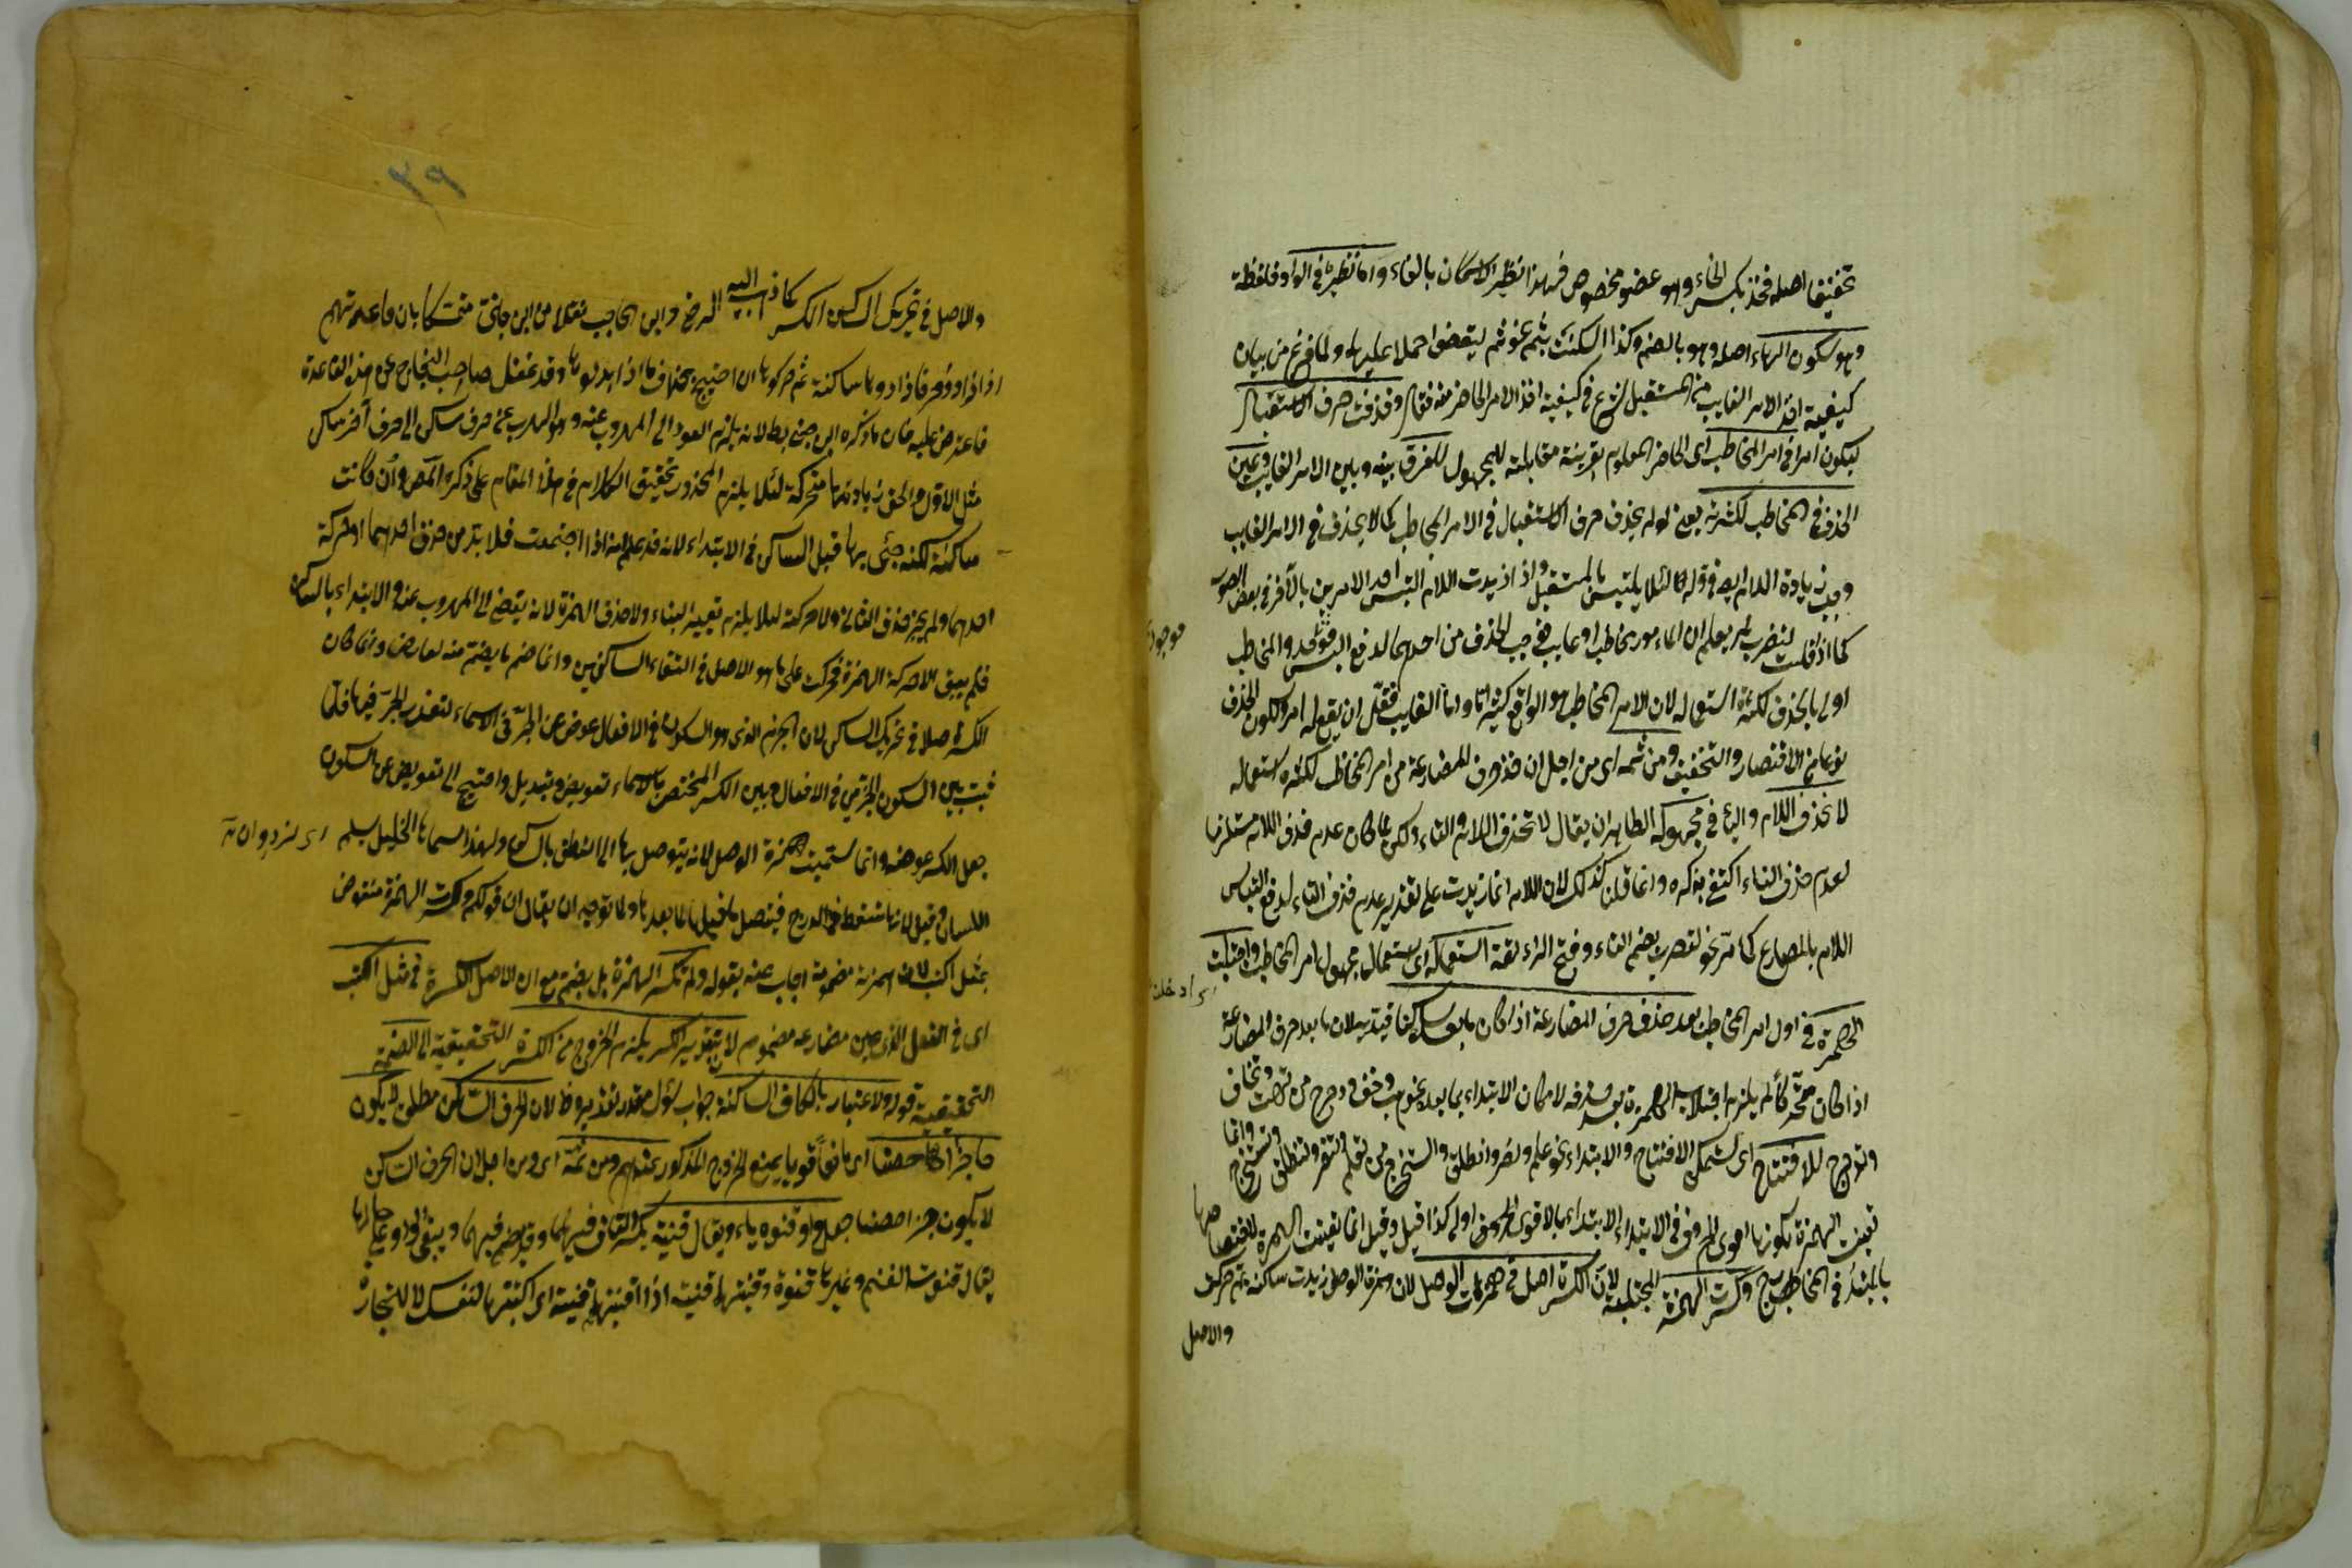 تخفيفا اصله فخذ بكسر الخاء وهو عضو مخصوص فهذا نظير الاسكان بالفاء واما نظيره في الواو فلفظة
وهو سكون الهاء اصله وهو بالضم وكذا اسكنت ثم نحو ثم ليقضوا حملا عليها ولما فرغ من بيان
كيفية اخذ الامر الغايب من المستقبل شرع في كيفية اخذ الامر الحاضر منه فقال وحذفت حرف الاستقبال
ليكون امرا في امر المخاطب اى الحاضر المعلوم بقرينة مقابلته للمجهول للفرق بينه وبين الامر الغايب وعين
الحذف في المخاطب لكثرته يعنى لو لم يحذف حرف الاستقبال في الامر المخاطب كما لا يحذف في الامر الغايب
وجب زيادة اللام لئلا يلتبس بالمستقبل واذا زيدت اللام التبس احد الامرين بالآخر في بعض الصور
كما اذا قلت لتضرب لم يعلم ان المامور مخاطب او غايب فوجب الحذف من احدهما لدفع والمخاطب
موجودة
اولى بالحذف لكثرة استعماله لان الامر المخاطب هو الواقع كثيرا واما الغايب فقل ان يقع له امر ولكون الحذف
نوعا من الاقتصار والتخفيف ومن ثمه اى من اجل ان حذف حرف المضارعة من امر المخاطب لكثرة استعماله
لا تحذف اللام والتاء في مجهوله الظاهر ان يقال لا تحذف اللام والتاء ولكن لما كان عدم حذف اللام مستلزما
لعدم حذف التاء اكتفى بذكره وانما قلنا كذلك لان اللام انما زيدت على تقدير عدم حذف التاء لدفع التباس
اللام بالمضارع كما مر نحو لتضرب بضم التاء وفتح الراء لقلة استعماله اى استعمال مجهول امر المخاطب واجتلبت
اى ادخلت
الهمزة في اول امر المخاطب بعد حذف حرف المضارعة اذا كان ما بعده ساكنا قيد به لان ما بعد حرف المضارعة
اذا كان متحركا لم يلزم اجتلاب الهمزة بعد حذفه لامكان الابتداء بما بعده نحو هب وخف ودحرج من تهب وتخاف
وتدحرج للافتتاح اى ليتمكن الافتتاح والابتداء نحو علم ونصر وانطلق واستخرج من تعلم وتنصر وتنطلق وتستخرج وانما
تعينت الهمزة لكونها اقوى الحروف والابتداء بالاقوى اولى كذا قيل وقيل انما تعينت الهمزة لاختصاصها
بالمبتدأ في المخارج وكسرت الهمزة المجتلبة لان الكسرة اصل في همزات الوصل لان همزة الوصل زيدت ساكنة ثم حركت
والاصل
٣٩
والاصل في تحريك الساكن الكسر كما ذهب اليه الرضى وابن الحاجب نقلا من ابن جنى متمسكا بان قاعدتهم
اذا زادوا حرفا زادوها ساكنة ثم حركوها ان احتيج بخلاف ما اذا ابدلوها وقد غفل صاحب النجاح عن هذه القاعدة
فاعترض عليه فان ما ذكره ابن جنى بطلانه يلزم العود الى المهروب عنه وهو الهرب عن حرف ساكن الى حرف آخر ساكن
مثل الاول والحق زيادتها متحركة لئلا يلزم المحذور تحقيق الكلام في هذا المقام على ذكره المص وان كانت
ساكنة لكنه جئ بها قبل الساكن في الابتداء لانه قد علم انه اذا اجتمعت فلا بد من حذف احدهما او حركة
احدهما ولم يجز حذف الثانى ولا حركته لئلا يلزم تغيير البناء ولا حذف الهمزة لانه يفضى الى المهروب عنه والابتداء بالساكن
فلم يبق الا حركة الهمزة فحركت على ما هو الاصل في التقاء الساكنين وانما ضم ما يضم منه لعارض وانما كان
الكسر اصلا في تحريك الساكن لان الجزم الذى هو السكون في الافعال عوض عن الجر في الاسماء لتعذر الجر فيها فلما
ثبت بين السكون الجزمى في الافعال وبين الكسر المختص بالاسماء تعويض وتبديل واحتيج الى تعويض عن السكون
جعل الكسر عوضه وانما سميت همزة الوصل لانه يتوصل بها الى النطق بالساكن ولهذا سماها الخليل سلم
اللسان وقيل لانها تسقط في الدرج فيتصل ما قبلها لما بعدها ولما توجه ان يقال ان قولكم وكسرت الهمزة منقوض
بمثل اكتب لان همزته مضمومة اجاب عنه بقوله ولم تكسر الهمزة بل يضم مع ان الاصل الكسرة في مثل اكتب
اى في الفعل الذى عين مضارعه مضموم لان بتقدير الكسر يلزم الخروج من الكسرة التحقيقية الى الضمة
التحقيقية قوله ولا اعتبار بالكاف الساكنة جواب سؤال مقدر تقديره ظ لان الحرف الساكن مطلق لا يكون
حاجزا حصينا اى مانعا قويا يمنع الخروج المذكور عندهم ومن ثمة اى ومن اجل ان الحرف الساكن
لا يكون حاجزا حصينا جعل واو قنوه ياء ويقال قنية بكسر القاف فيهما وقد يضم فيهما ويبقى الواو على حالها
يقال قنوت الغنم وغيرها قنوة وقنيتها قنية اذا اقنيتها قنية اى اكتبتها لنفسك لا للتجارة